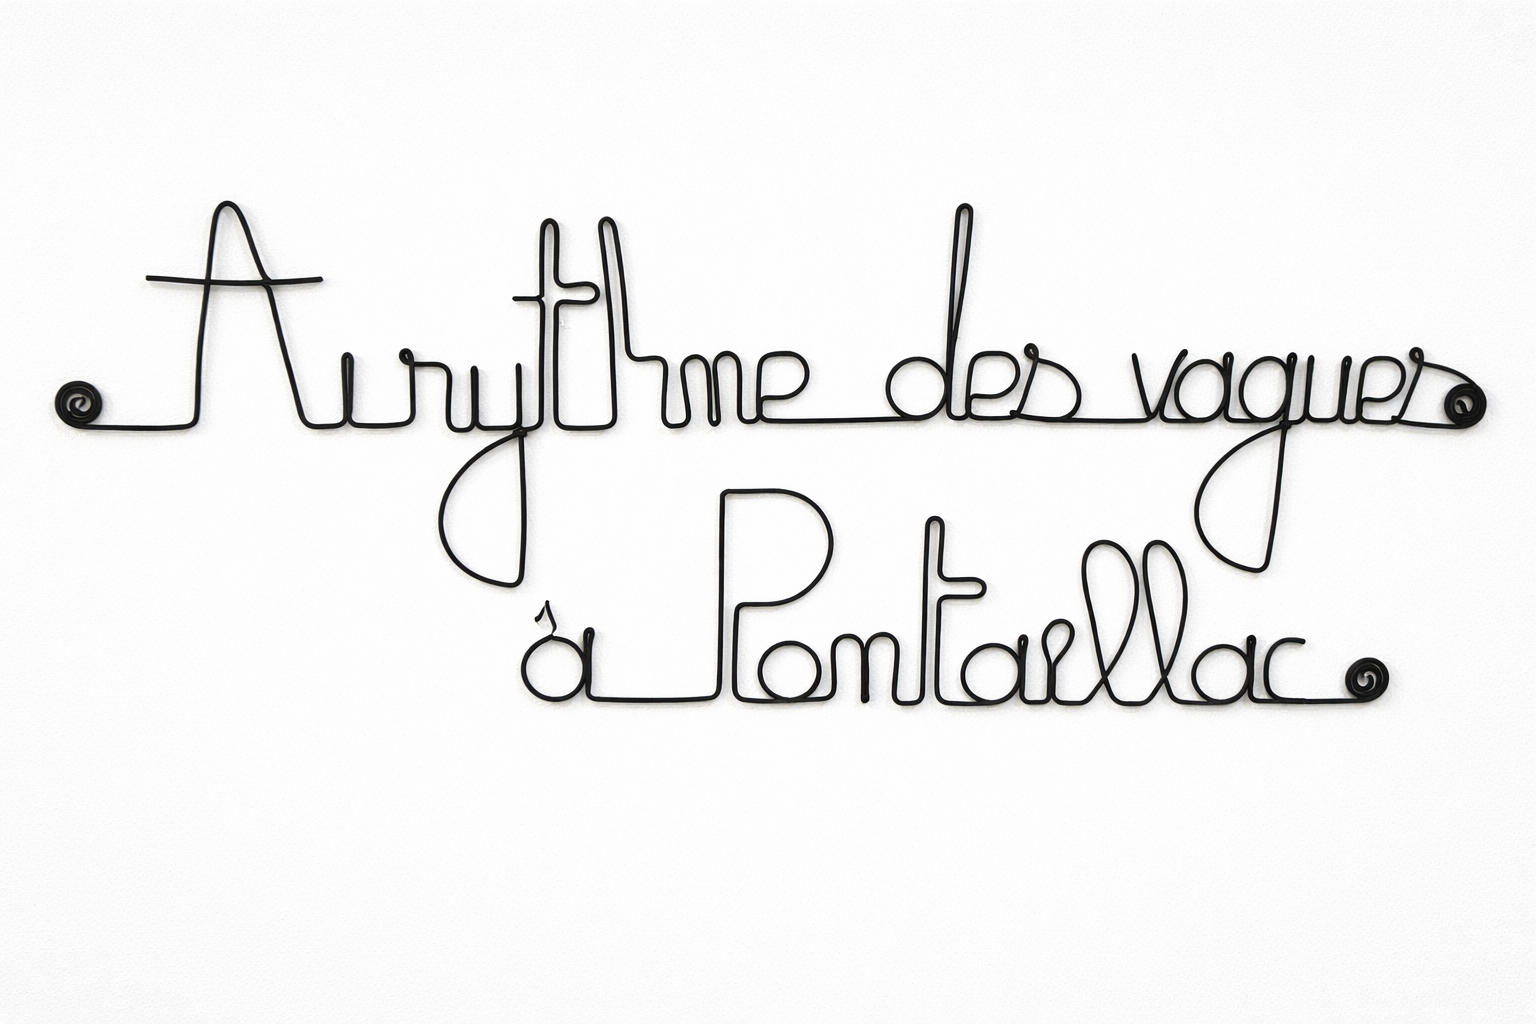 Au rythme des vagues
à Pontaillac